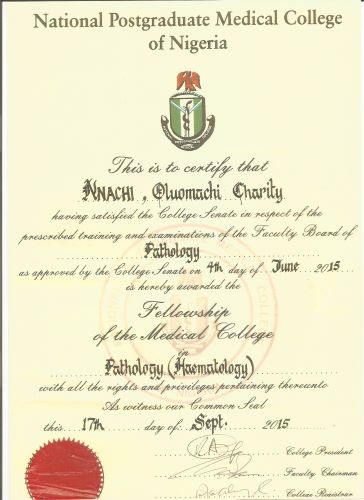 National Postgraduate Medical College
of Nigeria
This is to certify that
NNACHI, Oluomachi Charity
having satisfied the College Senate in respect of the
prescribed training and examinations of the Faculty Board of
Pathology
as approved by the College Senate on 4th day of June 2015
is hereby awarded the
Fellowship
of the Medical College
in
Pathology (Haematology)
with all the rights and privileges pertaining thereunto
As witness our Common Seal
this 17th day of Sept. 2015
College President
Faculty Chairman
College Registrar